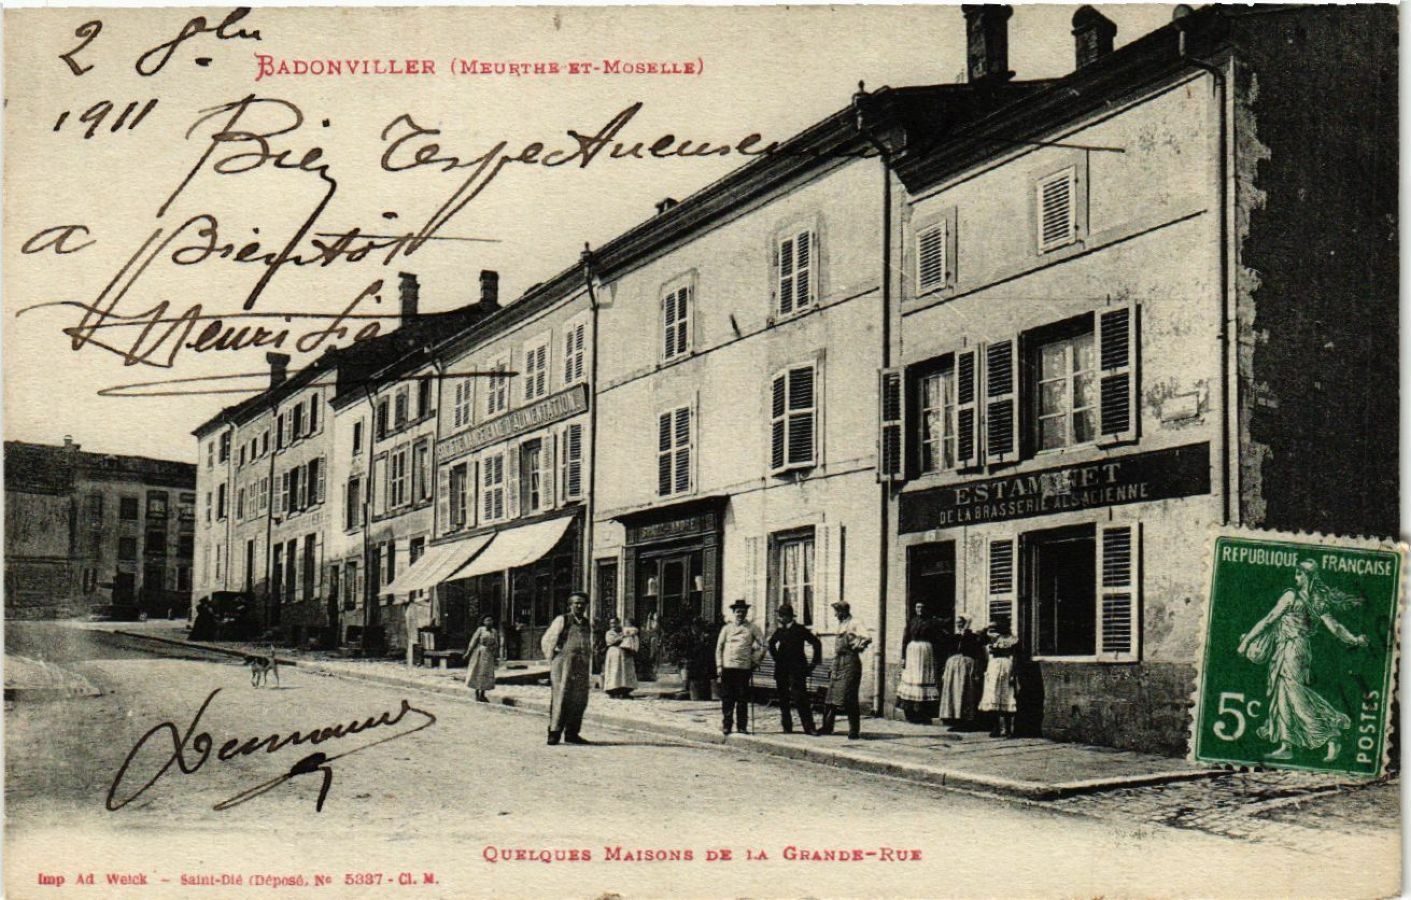 2 
BADONVILLER (MEURTHE-ET-MOSELLE)
1911
Bien respectueusement
a Bientôt
Henri
ESTAMINET
DE LA BRASSERIE ALSACIENNE
D'ALIMENTATION
REPUBLIQUE FRANÇAISE
5c
POSTES
QUELQUES MAISONS DE LA GRANDE-RUE
Imp Ad Weick - Saint-Dié (Déposé, No 5337 - Cl. M.